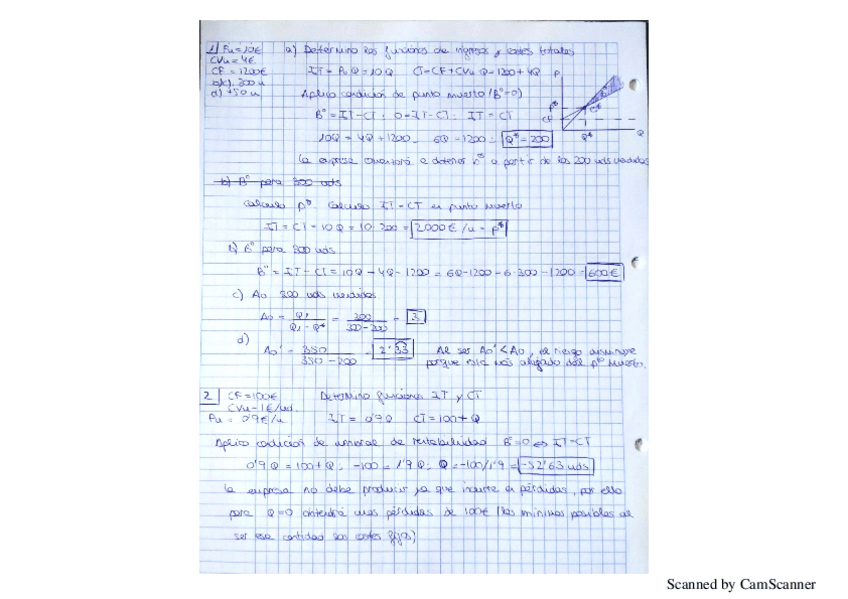 1 Pu = 10€ a) Determino las funciones de ingresos y costes totales
CVu = 4€
CF = 1200€ IT = Pu Q = 10Q CT = CF + CVu Q = 1200 + 4Q
b) c) 300 u
d) +50 u Aplico condición de punto muerto (Bº=0)
P
P*
CF
Q*
Q
Bº = IT - CT ; 0 = IT - CT ; IT = CT
10Q = 4Q + 1200 6Q = 1200 = Q* = 200
La empresa comenzará a obtener bº a partir de las 200 uds vendidas
b) Bº para 300 uds
Calculo P* Calculo IT = CT en punto muerto
IT = CT = 10Q = 10·200 = 2000€/u = P*
b) Bº para 300 uds
Bº = IT - CT = 10Q - 4Q - 1200 = 6Q - 1200 = 6·300 - 1200 = 600€
c) Ao 300 uds vendidas
Ao = Q1 / Q1 - Q* = 300 / 300-200 = 3
d)
Ao' = 350 / 350 - 200 = 2'33 Al ser Ao' < Ao, el riesgo
porque está más alejado del pto muerto.
2 CF = 100€ Determino funciones IT y CT
CVu = 1€/ud
Pu = 0'9€/u IT = 0'9Q CT = 100 + Q
Aplico condición de umbral de rentabilidad Bº=0 ⇔ IT=CT
0'9Q = 100 + Q ; -100 = 1'9Q ; Q = -100/1'9 = -52'63 uds
La empresa no debe producir ya que incurre en pérdidas, por ello
para Q=0 obtendrá unas pérdidas de 100€ (las mínimas posibles al
ser esa cantidad los costes fijos)
Scanned by CamScanner